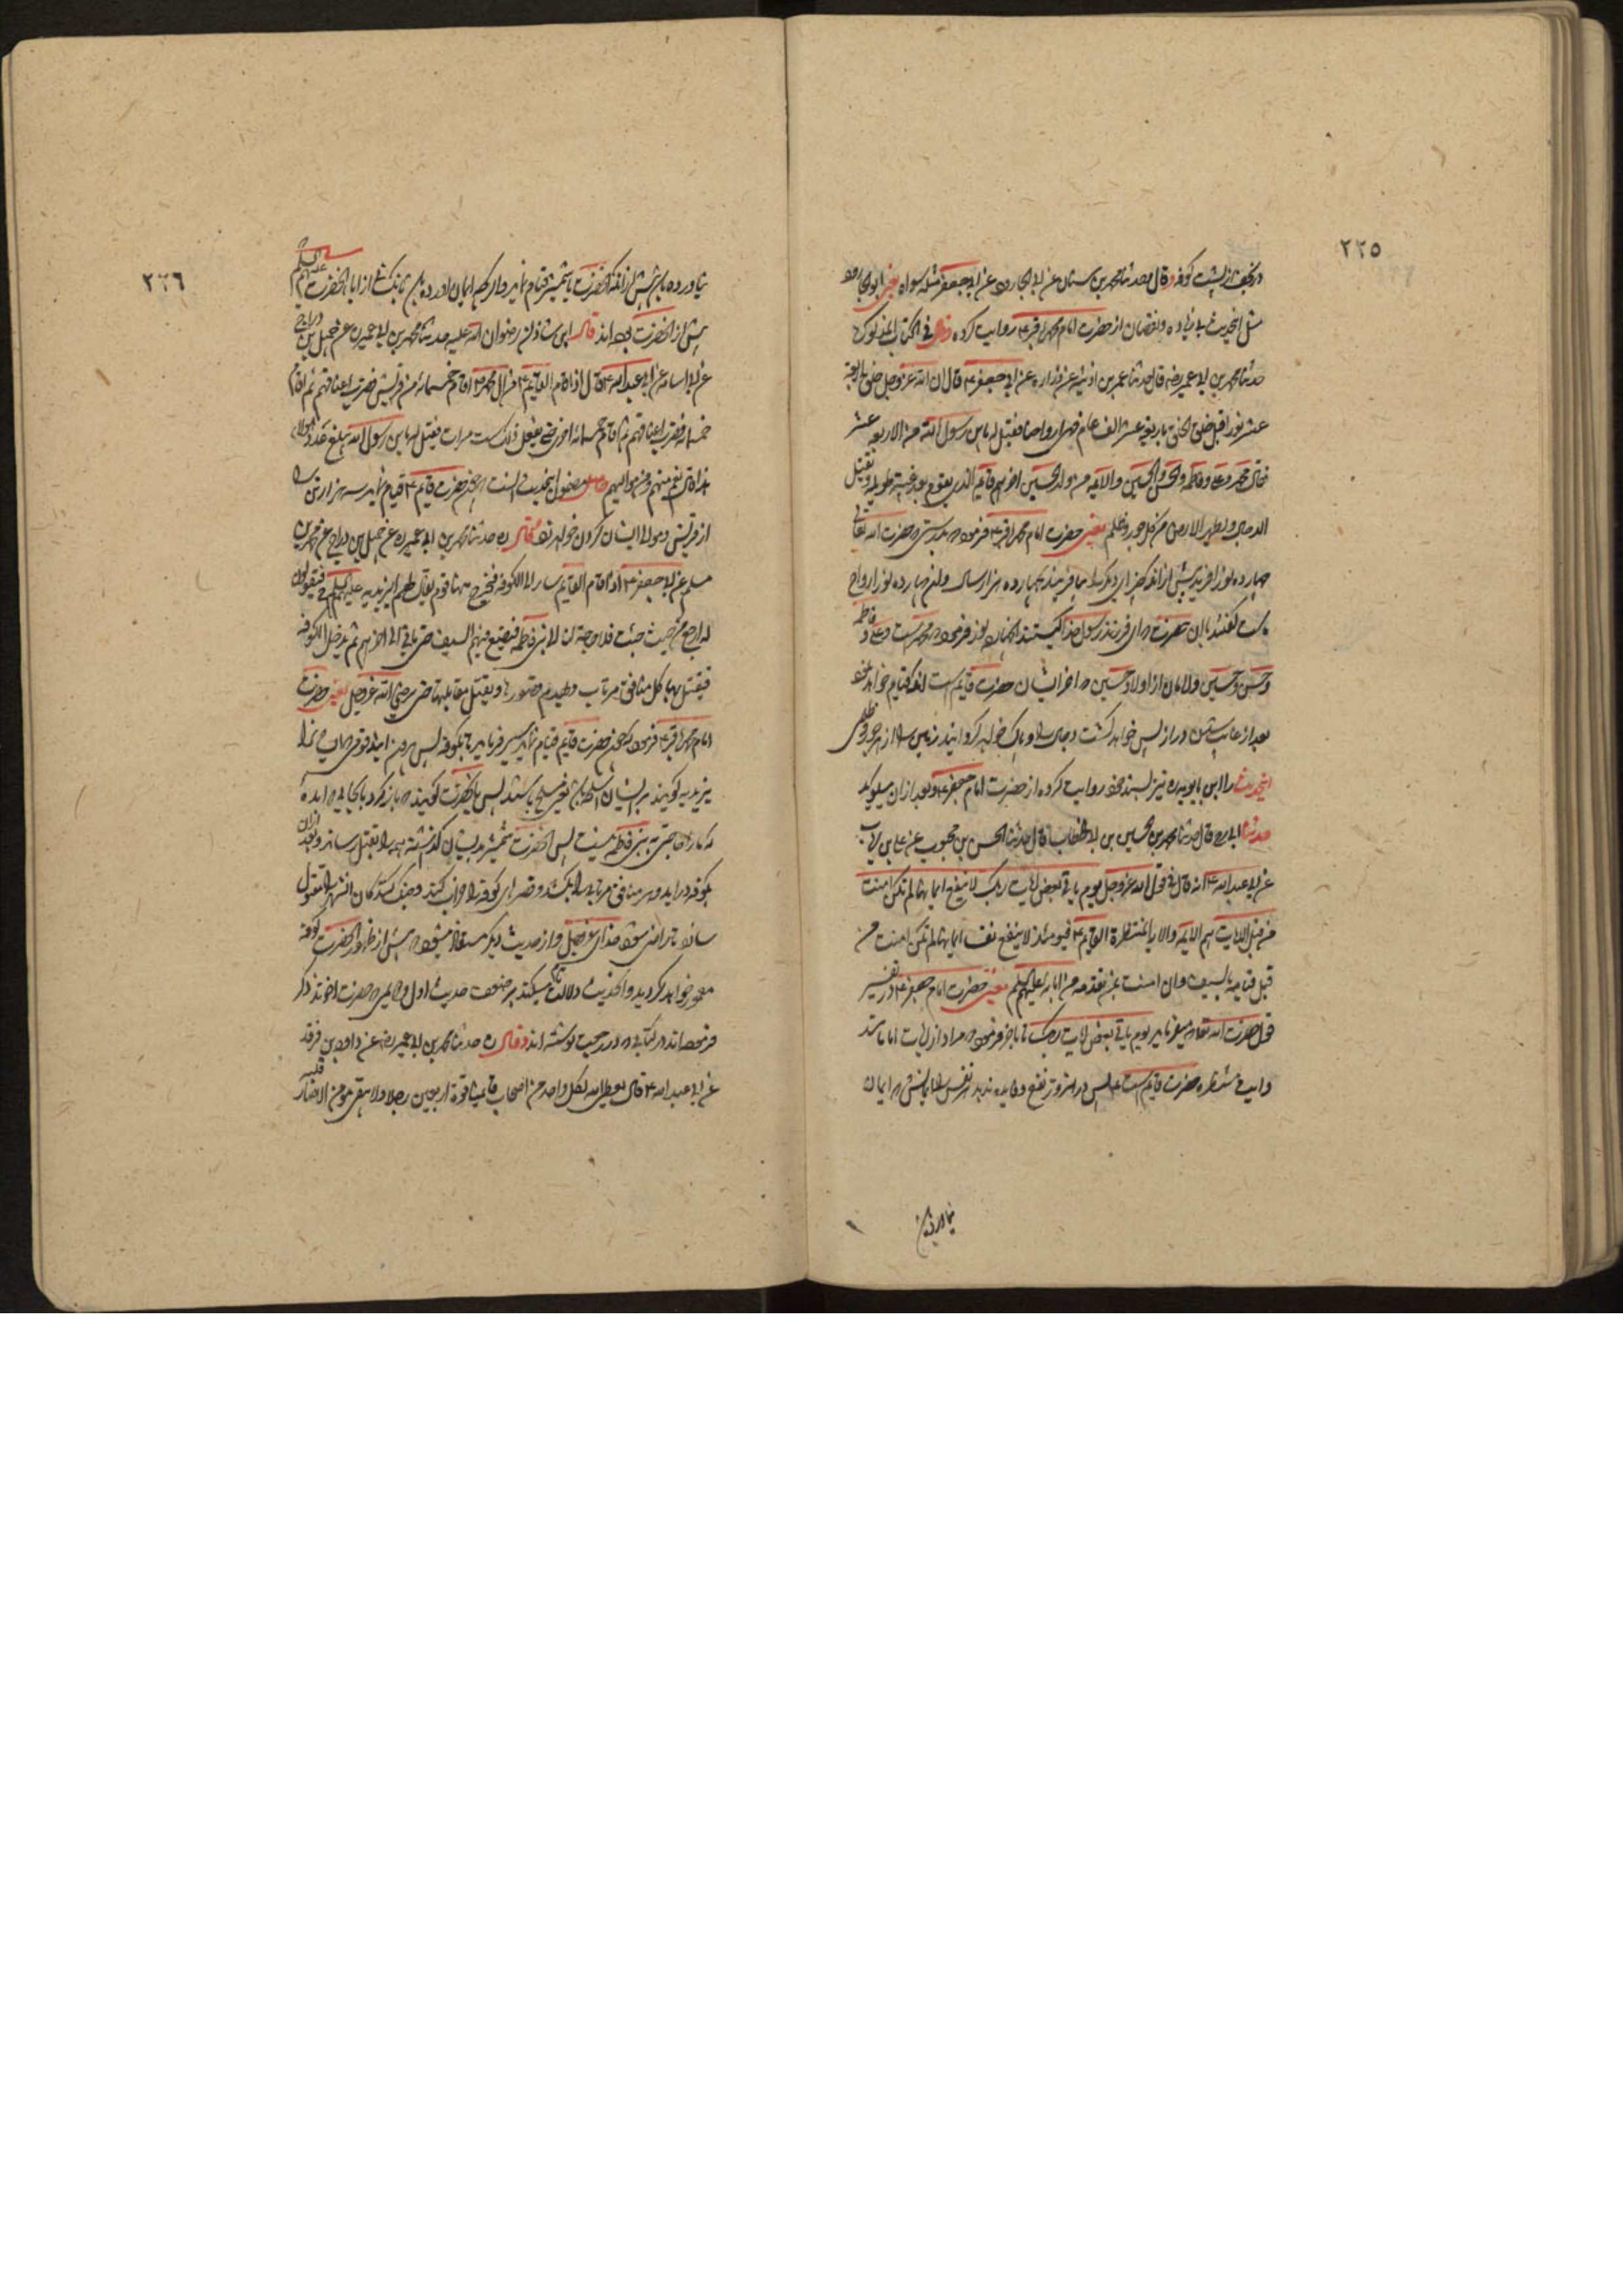 ٢٢٥
در نجف از پشت کوفه و قال حدثنا محمد بن سنان عن ابی الجارود عن ابی جعفر مثله سواء یعنی ابو الجارود
مثل اینحدیث بی زیاده و نقصان از حضرت امام محمد باقر ع روایت کرده و قال فی الکتاب المذکور
حدثنا محمد بن ابی عمیر رضه قال حدثنا عمر بن اذینه عن زراره عن ابی جعفر ع قال ان الله عز و جل خلق اربعة
عشر نورا قبل خلق الخلق باربعة عشر الف عام فهی ارواحنا فقیل له یابن رسول الله من الاربعة عشر
فقال محمد و علی و فاطمه و الحسن و الحسین و الائمه من ولد الحسین اخرهم قایم الذی یقوم بعد غیبة طویلة و یقتل
الدجال و یطهر الارض من کل جور و ظلم یعنی حضرت امام محمد باقر ع فرمود که بدرستی که حضرت الله تعالی
چهارده نور آفرید پیش از آنکه چیزهای دیگر را بیافریند بچهارده هزار سال و آن چهارده نور ارواح
ماست گفتند بآن حضرت که ای فرزند رسول خدا کیستند آنچهارده نور فرمود که محمد است و علی و فاطمه
و حسن و حسین و امامان از اولاد حسین که آخر ایشان حضرت قایم است آنکه قیام خواهد نمود
بعد از غایب شدن دراز پس خواهد کشت دجال را و پاک خواهد گردانید زمین را از هر جور و ظلمی
اینحدیث را ابن بابویه ره نیز بسند خود روایت کرده از حضرت امام جعفر ع و بعد از آن میگوید
حدثنا ابی ره قال حدثنا محمد بن الحسین بن ابی الخطاب قال حدثنا الحسن بن محبوب عن علی بن رئاب
عن ابی عبدالله ع انه قال فی قول الله عز و جل یوم یاتی بعض ایات ربک لا ینفع نفسا ایمانها لم تکن امنت
من قبل الایات هم الائمه و الایة المنتظرة القایم ع فیومئذ لا ینفع نفسا ایمانها لم تکن امنت من
قبل قیامه بالسیف و ان امنت بمن تقدمه من ابائه علیهم السلم یعنی حضرت امام جعفر ع در تفسیر
قول حضرت الله تعالی که میفرماید یوم یاتی بعض ایات ربک تا بآخر فرمود که مراد از ایات امامانند
و ایت منتظره حضرت قایم است ع پس در آنروز نفع و فایده ندهد هر نفس را ایمانش که ایمان
نیاورده باشد
٢٢٦
نیاورده باشد پیش از آنکه آنحضرت با شمشیر قیام نماید و اگر چه ایمان آورده باشد بآنکسانی از آباء آنحضرت علیهم السلم که
پیش از آنحضرت بوده اند قال ابن شاذان رضوان الله علیه حدثنا محمد بن ابی عمیر ره عن جمیل بن دراج
عن ابی اسامه عن ابی عبدالله ع قال اذا قام القایم ع من ال محمد ص اقام خمسمائة من قریش فضرب اعناقهم ثم اقام
خمسمائة فضرب اعناقهم ثم اقام خمسمائة اخری حتی یفعل ذلک ست مرات فقیل له یابن رسول الله یبلغ عدد هؤلاء
هذا قال نعم منهم و من موالیهم حاصل مضمون اینحدیث آنست که چون حضرت قایم ع قیام نماید سه هزار تن را
از قریش و موالی ایشان گردن خواهد زد و قال ره حدثنا محمد بن ابی عمیر ره عن جمیل بن دراج عن محمد بن
مسلم عن ابی جعفر ع اذا قام القایم سار الی الکوفه فیخرج منها قوم یقال لهم الیزیدیه علیهم السلاح فیقولون
له ارجع من حیث جئت فلا حاجة لنا الی بنی فاطمه فیضع فیهم السیف حتی یاتی الی اخرهم ثم یدخل الکوفه
فیقتل بها کل منافق مرتاب و یهدم قصورها و یقتل مقاتلیها حتی یرضی الله عز و جل یعنی حضرت
امام محمد باقر ع فرمود که چون حضرت قایم قیام نماید سیر فرماید تا بکوفه پس بیرون ایند قومی که ایشان را
یزیدیه گویند بر ایشان سلاح باشد یعنی مسلح باشند پس بآنحضرت گویند که باز گرد بآنجا که آمده
که ما را حاجتی به بنی فاطمه نیست پس آنحضرت شمشیر در ایشان گذاشته همه را بقتل رساند و بعد از آن
بکوفه در آید و هر منافق مرتابی را بکشد و قصرهای کوفه را خراب کند و جنگ کنندگان آنشهر را مقتول
سازد تا راضی شود خدای عز و جل و از حدیث دیگر مستفاد میشود که پیش از ظهور آنحضرت کوفه
معمور خواهد گردید و اینحدیث دلالت میکند بر حدیث اول و که حضرت آخوند ذکر
فرموده اند در کتابی که در رجعت نوشته اند و قال ره حدثنا محمد بن ابی عمیر رضه عن داود بن فرقد
عن ابی عبدالله ع قال یعطی الله لکل واحد من اصحاب قایمنا قوة اربعین رجلا و لا یبقی مؤمن الا صار قلبه